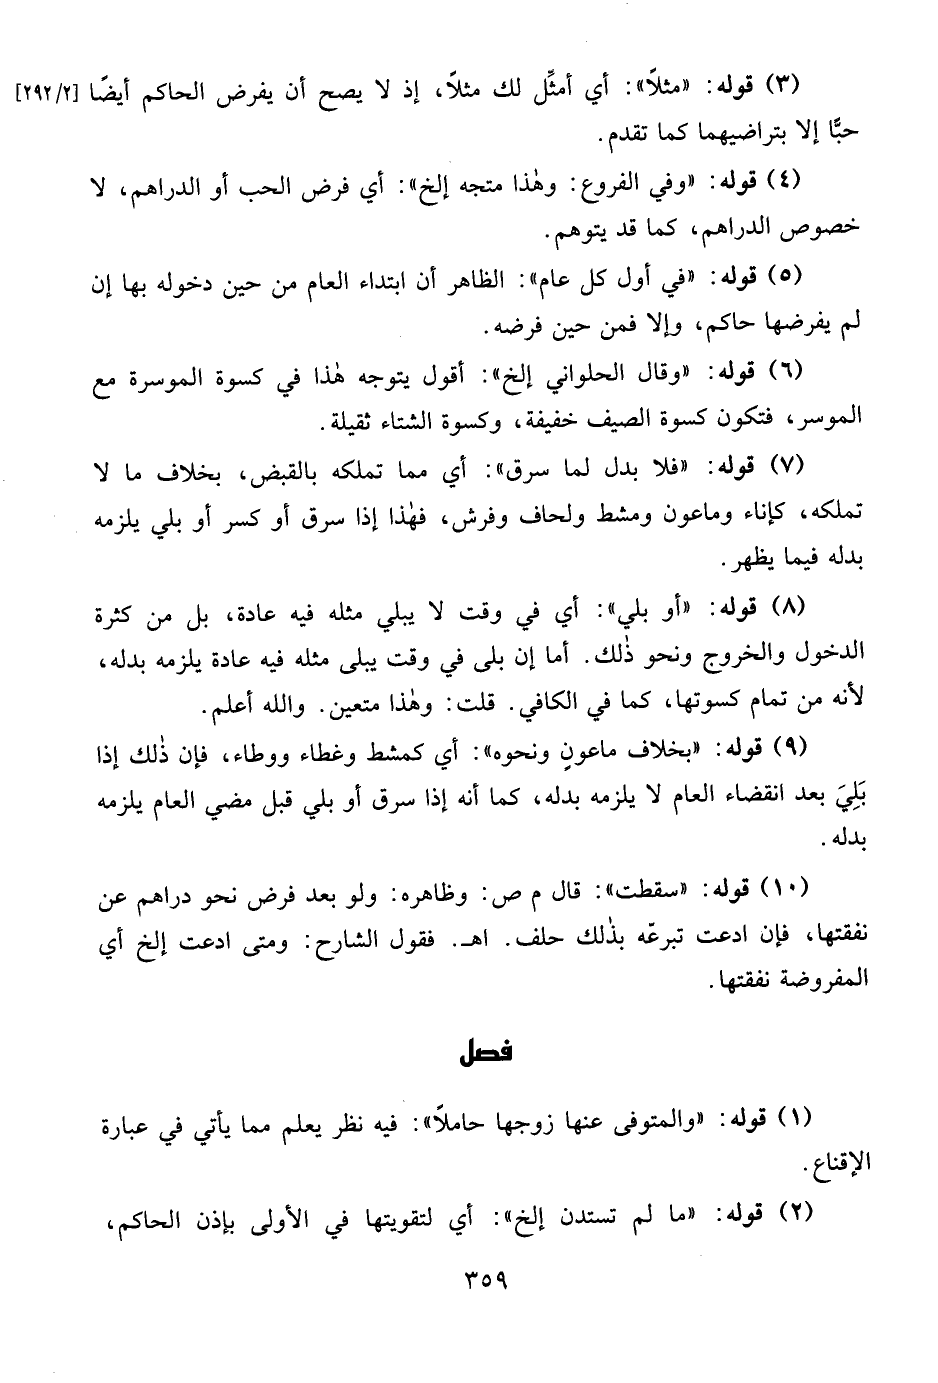 (٣) قوله: «مثلاً»: أي أمثِّل لك مثلاً، إذ لا يصح أن يفرض الحاكم أيضًا [٢٩٢/٢]
حبًّا إلا بتراضيهما كما تقدم.
(٤) قوله: «وفي الفروع: وهٰذا متجه إلخ»: أي فرض الحب أو الدراهم، لا
خصوص الدراهم، كما قد يتوهم.
(٥) قوله: «في أول كل عام»: الظاهر أن ابتداء العام من حين دخوله بها إن
لم يفرضها حاكم، وإلا فمن حين فرضه.
(٦) قوله: «وقال الحلواني إلخ»: أقول يتوجه هٰذا في كسوة الموسرة مع
الموسر، فتكون كسوة الصيف خفيفة، وكسوة الشتاء ثقيلة.
(٧) قوله: «فلا بدل لما سرق»: أي مما تملكه بالقبض، بخلاف ما لا
تملكه، كإناء وماعون ومشط ولحاف وفرش، فهٰذا إذا سرق أو كسر أو بلي يلزمه
بدله فيما يظهر.
(٨) قوله: «أو بلي»: أي في وقت لا يبلي مثله فيه عادة، بل من كثرة
الدخول والخروج ونحو ذٰلك. أما إن بلى في وقت يبلى مثله فيه عادة يلزمه بدله،
لأنه من تمام كسوتها، كما في الكافي. قلت: وهٰذا متعين. والله أعلم.
(٩) قوله: «بخلاف ماعونٍ ونحوه»: أي كمشط وغطاء ووطاء، فإن ذٰلك إذا
بَلِيَ بعد انقضاء العام لا يلزمه بدله، كما أنه إذا سرق أو بلي قبل مضي العام يلزمه
بدله.
(١٠) قوله: «سقطت»: قال م ص: وظاهره: ولو بعد فرض نحو دراهم عن
نفقتها، فإن ادعت تبرعّه بذٰلك حلف. اهـ. فقول الشارح: ومتى ادعت إلخ أي
المفروضة نفقتها.
فصل
(١) قوله: «والمتوفى عنها زوجها حاملاً»: فيه نظر يعلم مما يأتي في عبارة
الإقناع.
(٢) قوله: «ما لم تستدن إلخ»: أي لتقويتها في الأولى بإذن الحاكم،
٣٥٩